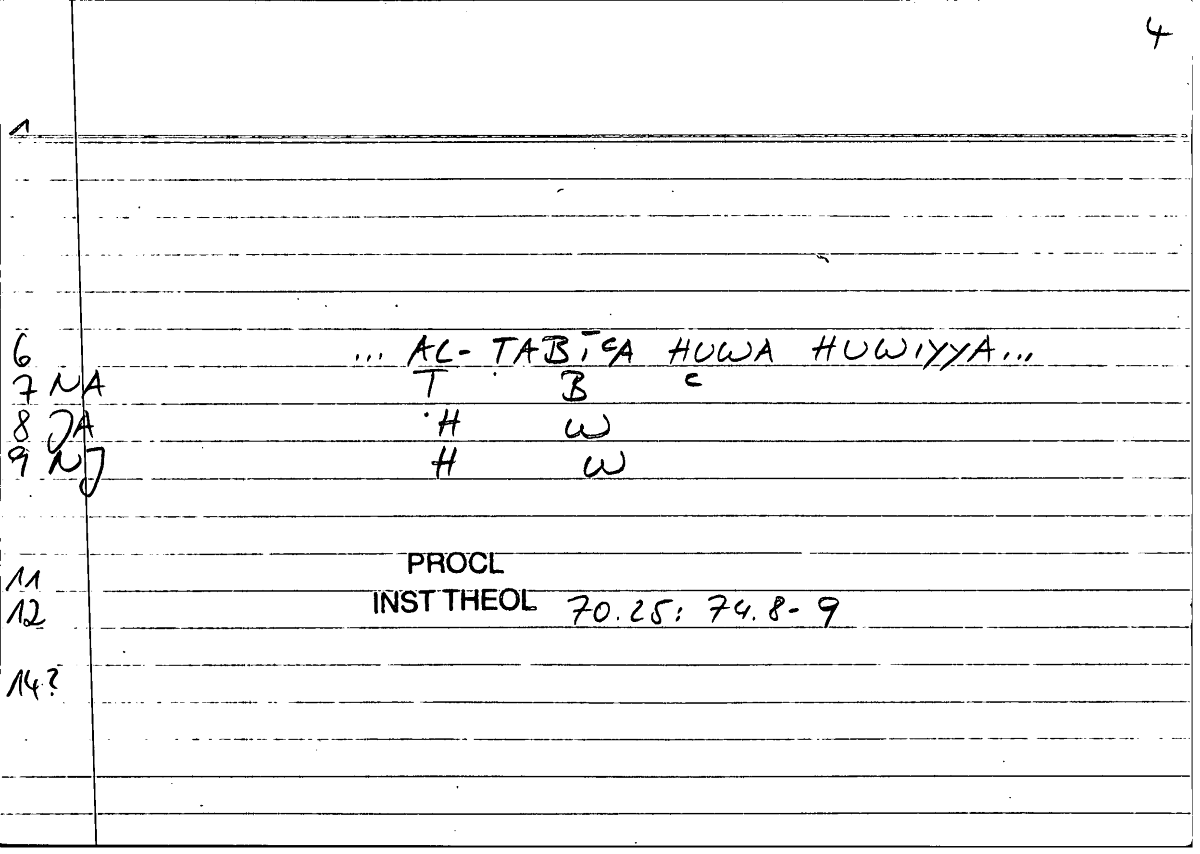 4
1
6 ... AL-ṬABĪcA HUWA HUWIYYA...
7 NA Ṭ B c
8 JA H W
9 NJ H W
11 PROCL
12 INST THEOL 70.25: 74.8-9
14?